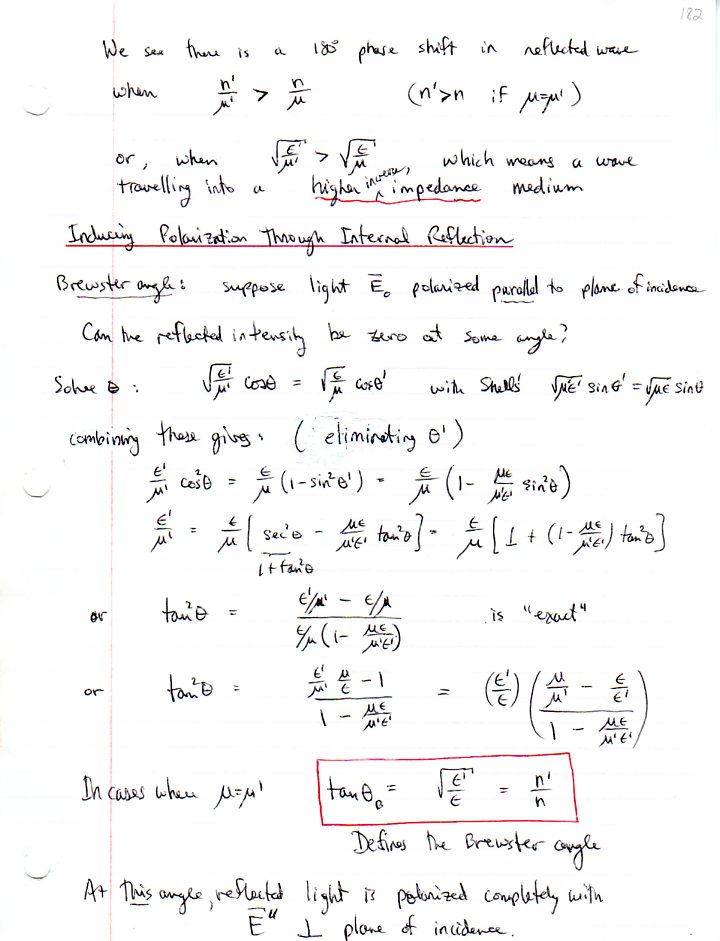 182
We see there is a 180° phase shift in reflected wave
when n'/μ' > n/μ (n'>n if μ=μ')
or, when √(ε'/μ') > √(ε/μ), which means a wave
travelling into a higher inverse impedance medium
Inducing Polarization Through Internal Reflection
Brewster angle: suppose light E̅₀ polarized parallel to plane of incidence
Can the reflected intensity be zero at some angle?
Solve θ: √(ε'/μ') cosθ = √(ε/μ) cosθ' with Snells' √(μ'ε') sinθ' = √(με) sinθ
combining these gives: (eliminating θ')
ε'/μ' cos²θ = ε/μ (1-sin²θ') = ε/μ (1 - με/μ'ε' sin²θ)
ε'/μ' = ε/μ [sec²θ - με/μ'ε' tan²θ] = ε/μ [1 + (1 - με/μ'ε') tan²θ]
1+tan²θ
or tan²θ = (ε'/μ' - ε/μ) / (ε/μ (1 - με/μ'ε')) is "exact"
or tan²θ = (ε'/μ' μ/ε - 1) / (1 - με/μ'ε') = (ε'/ε) ((μ/μ' - ε/ε') / (1 - με/μ'ε'))
In cases when μ=μ' tanθ_B = √(ε'/ε) = n'/n
Defines the Brewster angle
At this angle, reflected light is polarized completely with
E̅" ⊥ plane of incidence.